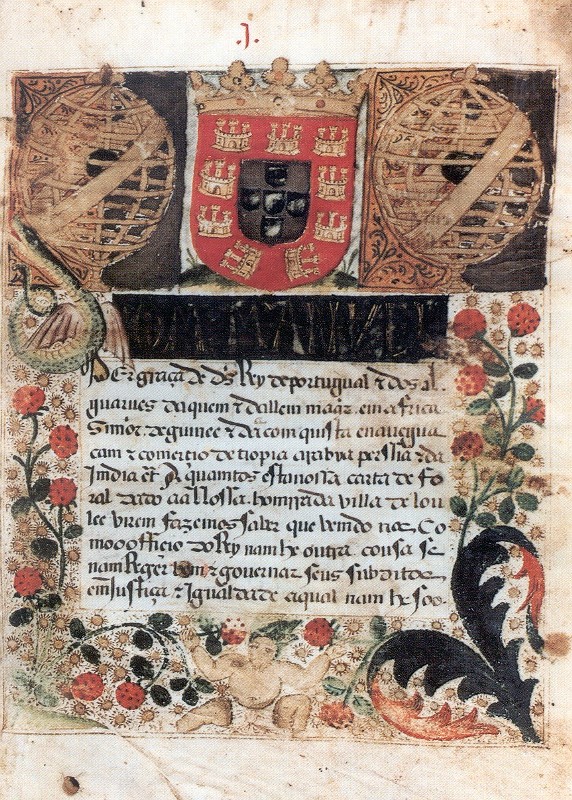 .J.
Per graça de d's Rey de portugual τ dos al
guarues daquem τ dallem maar em africa
Senhor de guinee τ da comquista enauegua
cam τ comercio de tiopia arabia perssia τ da
India et̃. A quamtos esta nossa carta de fo
ral dado aa Nossa homrrada villa de lou
lee virem fazemos saber que vendo nos Co
mo o officio do Rey nam he outra cousa se
nam Reger bem τ governar seus subditos
em Justiça τ Igualdade a qual nam he soo